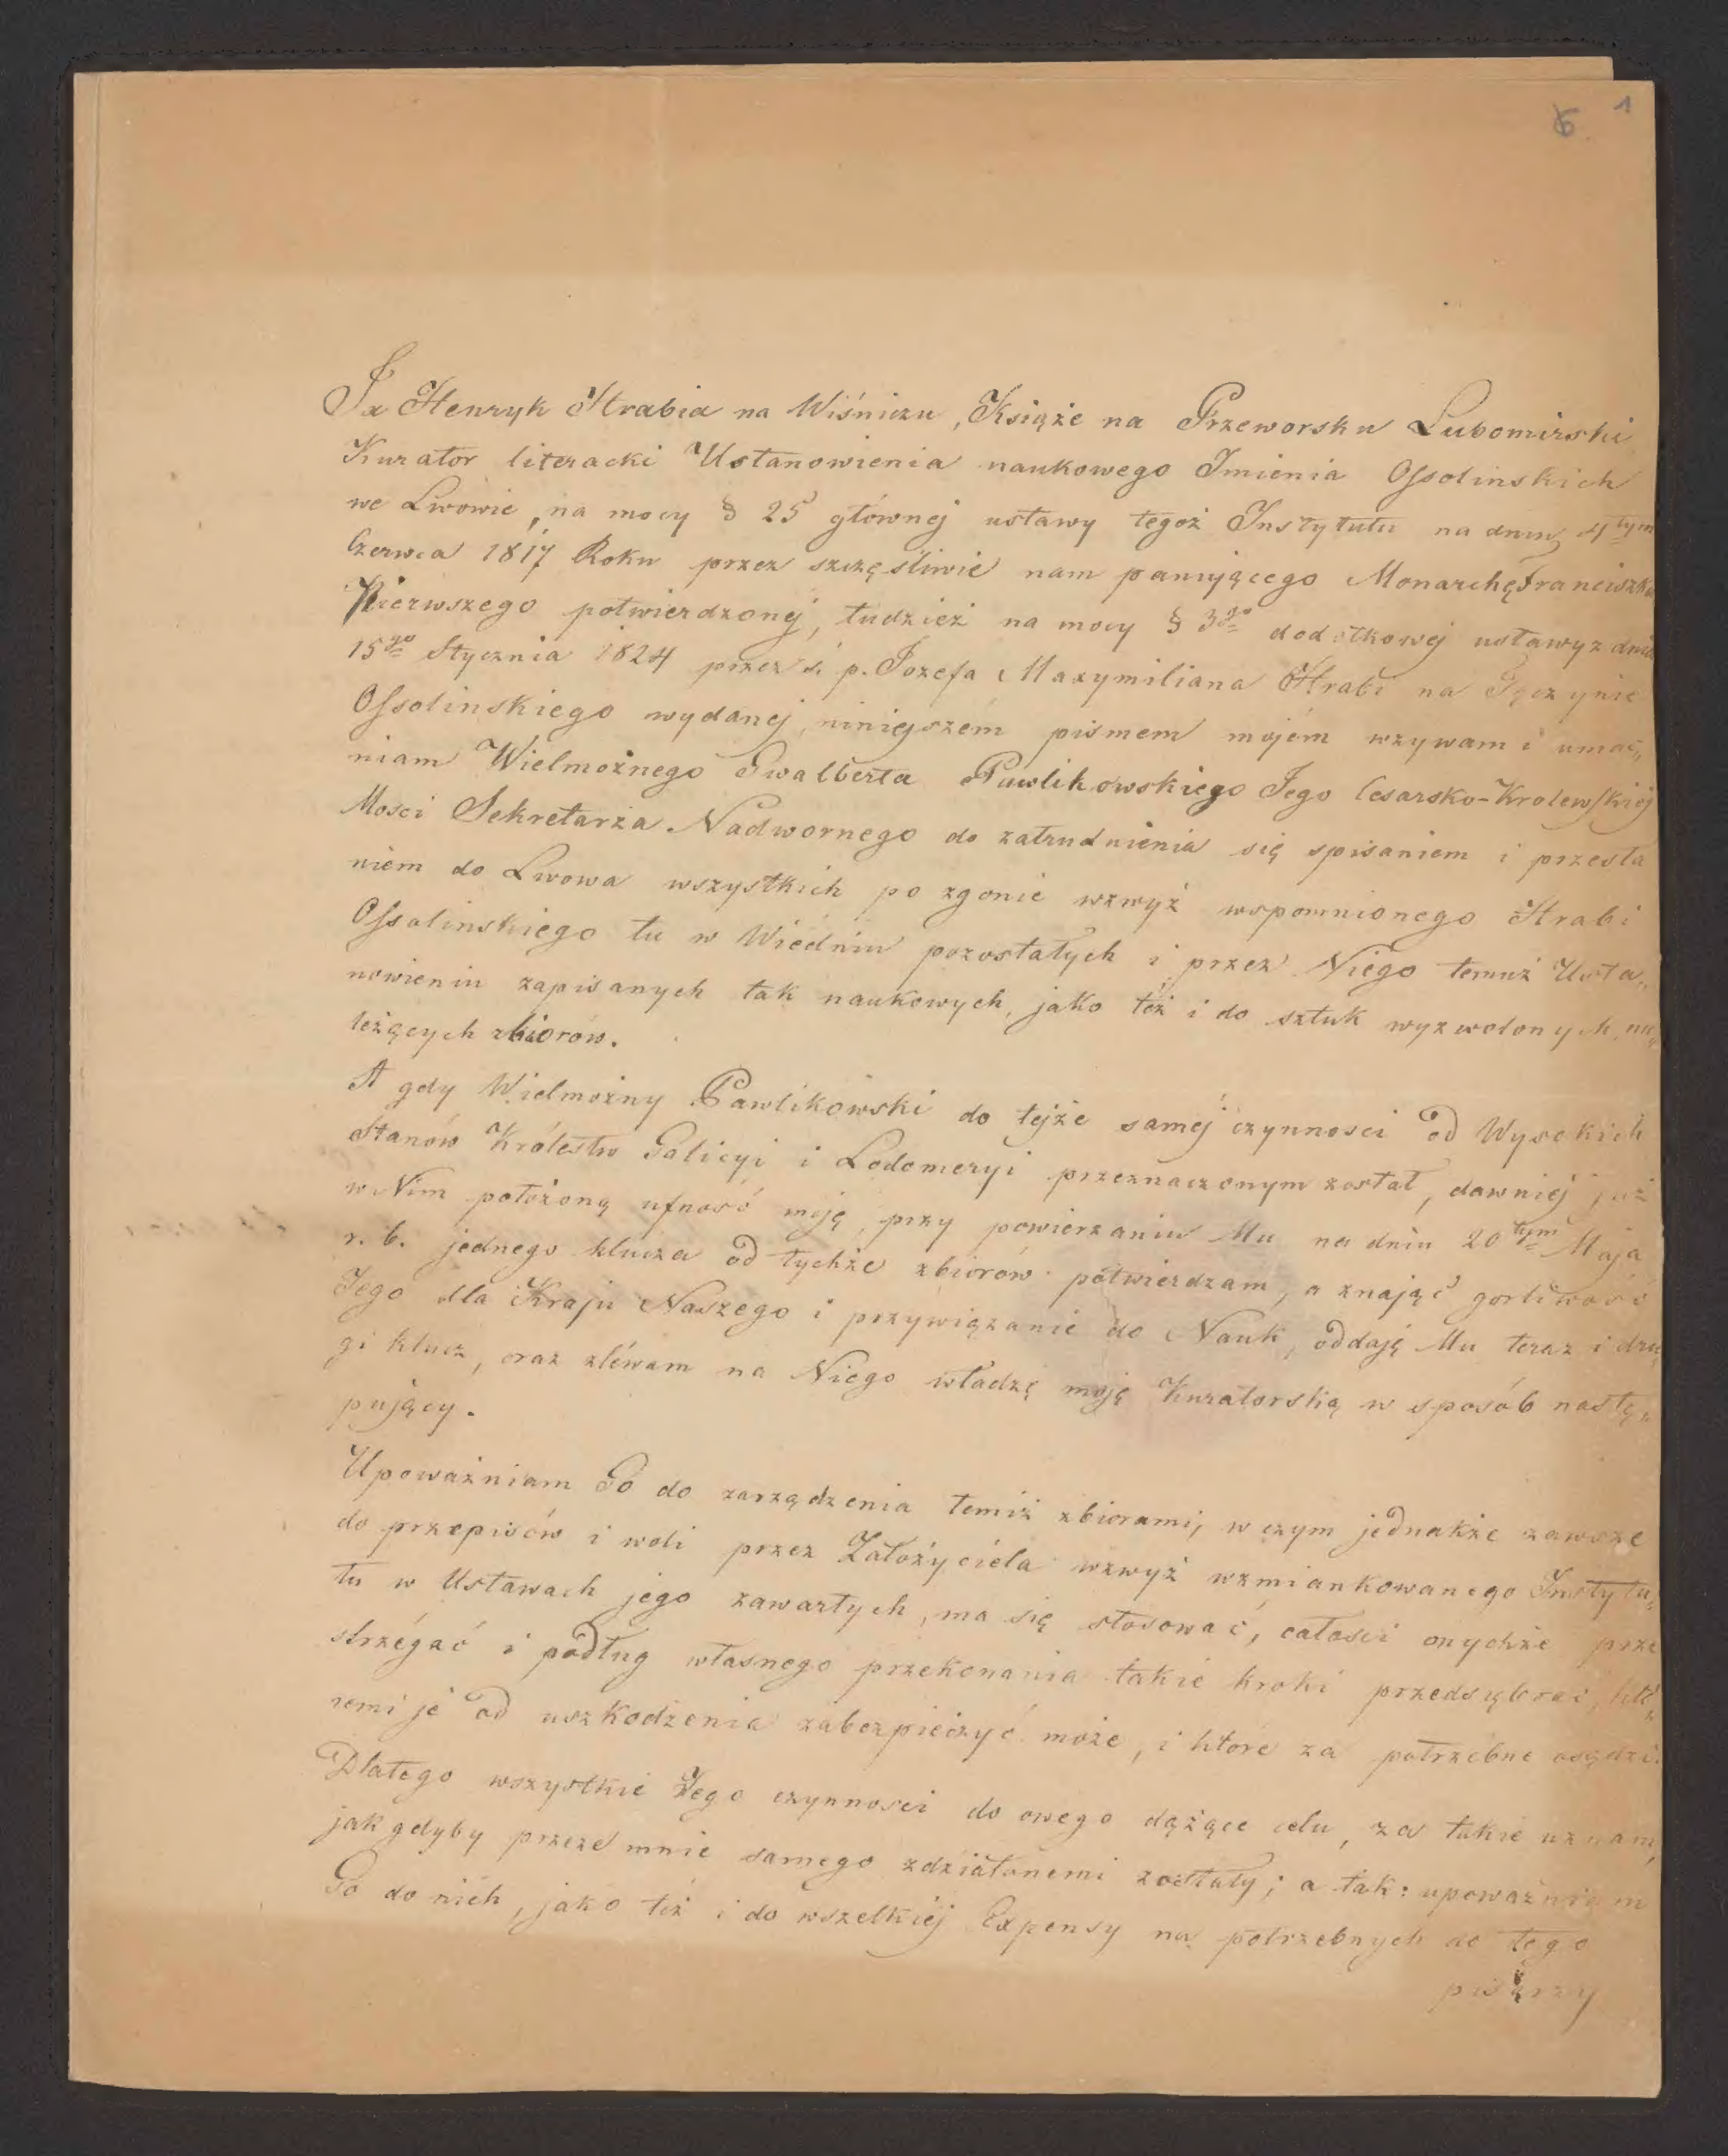 6 1
Ja Henryk Hrabia na Wiśniczu, Książe na Przeworsku Lubomirski
Kurator literacki Ustanowienia naukowego Imienia Ossolinskich
we Lwowie, na mocy § 25 głównej ustawy tegoż Instytutu na dniu 4tym
Czerwca 1817 Roku przez szczęśliwie nam panującego Monarchę Franciszka
Pierwszego potwierdzonej, tudzież na mocy § 3go dodatkowej ustawy z dnia
15go Stycznia 1824 przez ś. p. Jozefa Maxymiliana Hrabi na Tęczynie
Ossolinskiego wydanej, ninieyszém pismem mojém wzywam i umac„
niam Wielmożnego Gwalberta Pawlikowskiego Jego Cesarsko-Krolewskiéj
Mosci Sekretarza Nadwornego do zatrudnienia się spisaniem i przesła
niem do Lwowa wszystkich po zgonie wzwyż wspomnionego Hrabi
Ossolinskiego tu w Wiédniu pozostałych i przez Niego temuż Usta„
nowieniu zapisanych tak naukowych, jako też i do sztuk wyzwolonych na„
leżących zbiorów.
A gdy Wielmożny Pawlikowski do tejże saméj czynnosci od Wysokich
Stanów Królestw Galicyi i Lodomeryi przeznaczonym został, dawniéj już
w Nim położoną ufność moję, przy powierzaniu Mu na dniu 20tym Maja
r. b. jednego klucza od tychże zbiorów potwierdzam, a znając gorliwość
Jego dla Kraju Naszego i przywiązanie do Nauk, oddaję Mu teraz i dru
gi klucz, oraz zléwam na Niego władzę moję Kuratorską w sposób nastę„
pujący.
Upoważniam Go do zarządzenia temiż zbiorami, w czym jednakże zawsze
do przepisów i woli przez Założyciela wzwyż wzmiankowanego Instytu„
tu w Ustawach jego zawartych, ma się stosować, całosci onychże prze
strzégać i podług własnego przekonania takie kroki przedsiębrać, któ„
remi je od uszkodzenia zabezpieczyć może, i które za potrzebne osądzi.
Dlatego wszystkie Jego czynnosci do owego dążące celu, za takie uznam,
jak gdyby przeze mnie samego zdziałanemi zostały; a tak: upoważniam
Go do nich, jako też i do wszelkiéj Expensy na potrzebnych do tego
pisarzy